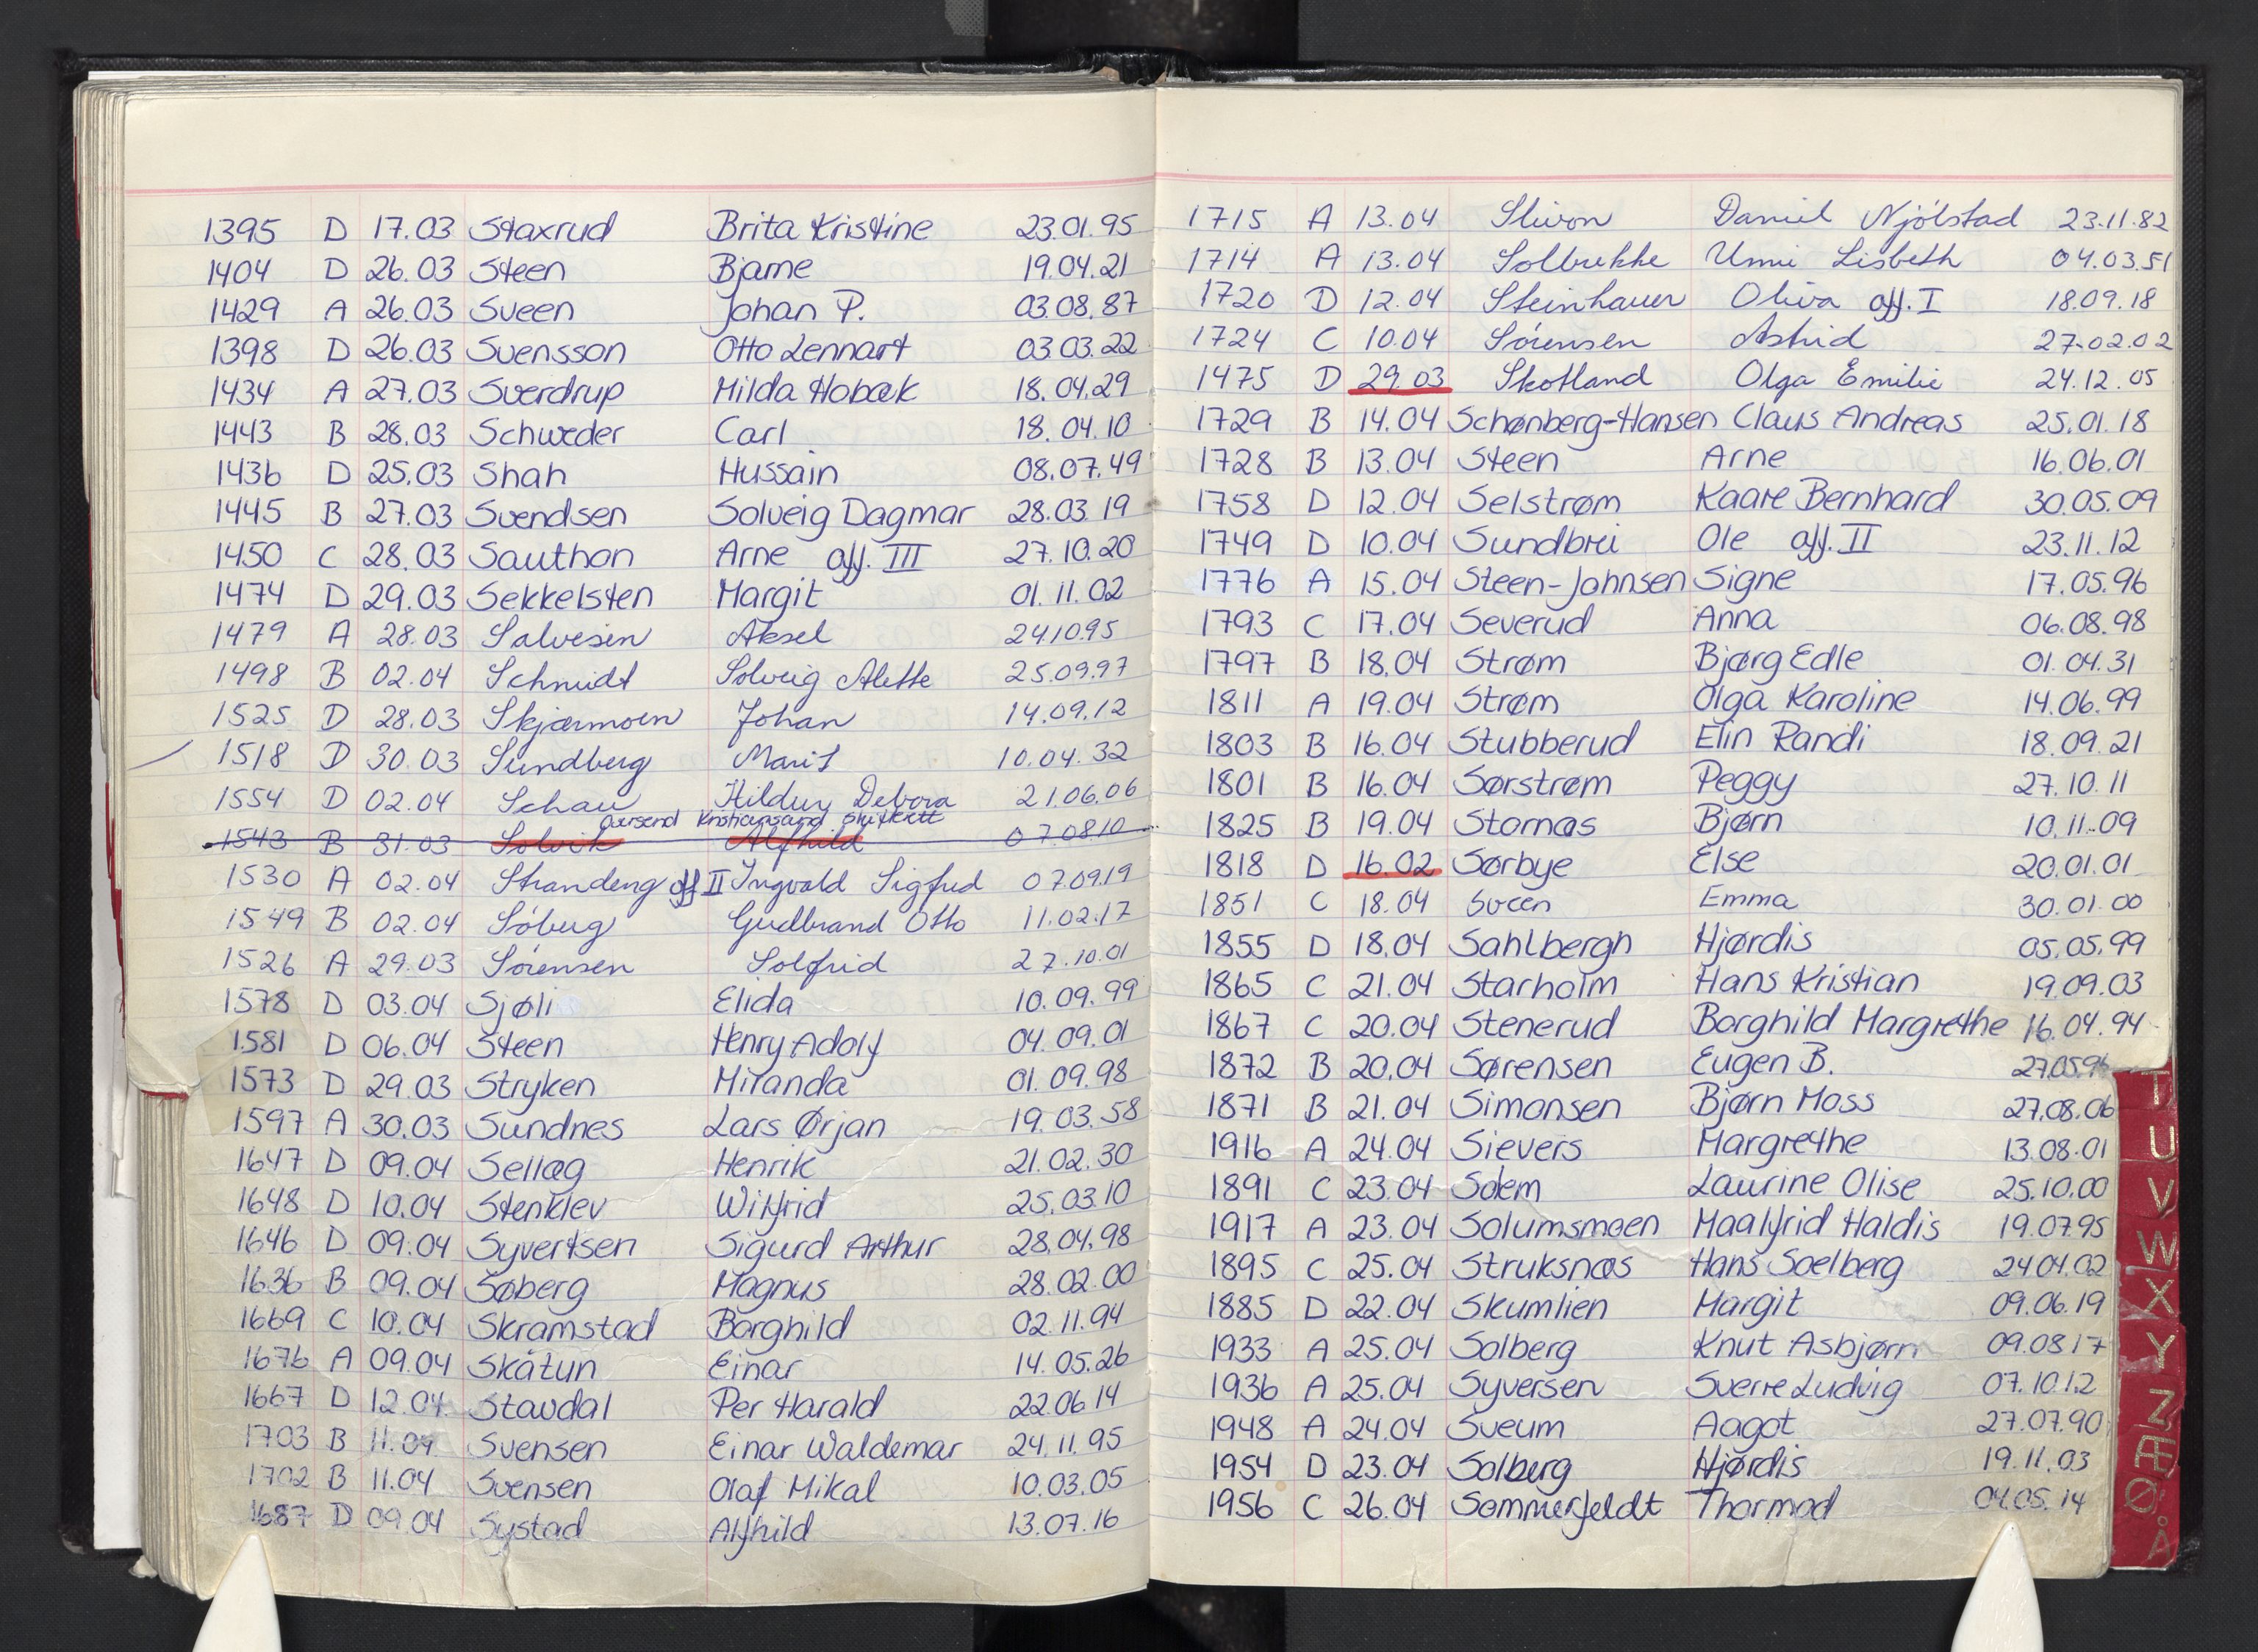 1395 D 17.03 Staxrud Brita Kristine 23.01.95
1404 D 26.03 Steen Bjarne 19.04.21
1429 A 26.03 Sveen Johan P. 03.08.87
1398 D 26.03 Svensson Otto Lennart 03.03.22
1434 A 27.03 Sverdrup Milda Hobæk 18.04.29
1443 B 28.03 Schweder Carl 18.04.10
1436 D 25.03 Shah Hussain 08.07.49
1445 B 27.03 Svendsen Solveig Dagmar 28.03.19
1450 C 28.03 Sauthon Arne off. III 27.10.20
1474 D 29.03 Sekkelsten Margit 01.11.02
1479 A 28.03 Salvesen Aksel 24.10.95
1498 B 02.04 Schmidt Solveig Alette 25.09.97
1525 D 28.03 Skjærmoen Johan 14.09.12
1518 D 30.03 Sundberg Marit 10.04.32
1554 D 02.04 Schau Hildur Debora 21.06.06
oversend Kristiansand skifterett
1543 B 31.03 Solvik Alfhild 07.08.10
1530 A 02.04 Strandeng off II Ingvald Sigfred 07.09.19
1549 B 02.04 Söberg Gudbrand Otto 11.02.17
1526 A 29.03 Sörensen Solfrid 27.10.01
1578 D 03.04 Sjøli Elida 10.09.99
1581 D 06.04 Steen Henry Adolf 04.09.01
1573 D 29.03 Stryken Miranda 01.09.98
1597 A 30.03 Sundnes Lars Ørjan 19.03.58
1647 D 09.04 Sellæg Henrik 21.02.30
1648 D 10.04 Stenklev Wilfrid 25.03.10
1646 D 09.04 Syvertsen Sigurd Arthur 28.04.98
1636 B 09.04 Søberg Magnus 28.02.00
1669 C 10.04 Skramstad Borghild 02.11.94
1676 A 09.04 Skåtun Einar 14.05.26
1667 D 12.04 Stavdal Per Harald 22.06.14
1703 B 11.04 Svensen Einar Waldemar 24.11.95
1702 B 11.04 Svensen Olaf Mikal 10.03.05
1687 D 09.04 Systad Alfhild 13.07.16
1715 A 13.04 Slivon Daniel Njölstad 23.11.82
1714 A 13.04 Solbrekke Unni Lisbeth 04.03.51
1720 D 12.04 Steinhauer Oliva off. I 18.09.18
1724 C 10.04 Sörensen Astrid 27.02.02
1475 D 29.03 Skotland Olga Emilie 24.12.05
1729 B 14.04 Schønberg-Hansen Claus Andreas 25.01.18
1728 B 13.04 Steen Arne 16.06.01
1758 D 12.04 Selstrøm Kaare Bernhard 30.05.09
1749 D 10.04 Sundbrei Ole off. II 23.11.12
1776 A 15.04 Steen-Johnsen Signe 17.05.96
1793 C 17.04 Severud Anna 06.08.98
1797 B 18.04 Strøm Bjørg Edle 01.04.31
1811 A 19.04 Strøm Olga Karoline 14.06.99
1803 B 16.04 Stubberud Elin Randi 18.09.21
1801 B 16.04 Sørstrøm Peggy 27.10.11
1825 B 19.04 Stornæs Bjørn 10.11.09
1818 D 16.02 Sørbye Else 20.01.01
1851 C 18.04 Sveen Emma 30.01.00
1855 D 18.04 Sahlbergh Hjørdis 05.05.99
1865 C 21.04 Starholm Hans Kristian 19.09.03
1867 C 20.04 Stenerud Borghild Margrethe 16.04.94
1872 B 20.04 Sørensen Eugen B. 27.05.96
1871 B 21.04 Simonsen Bjørn Moss 27.08.06
1916 A 24.04 Sievers Margrethe 13.08.01
1891 C 23.04 Solem Laurine Olise 25.10.00
1917 A 23.04 Solumsmoen Maalfrid Haldis 19.07.95
1895 C 25.04 Struksnæs Hans Soelberg 24.04.02
1885 D 22.04 Skumlien Margit 09.06.19
1933 A 25.04 Solberg Knut Asbjørn 09.08.17
1936 A 25.04 Syversen Sverre Ludvig 07.10.12
1948 A 24.04 Sveum Aagot 27.07.90
1954 D 23.04 Solberg Hjørdis 19.11.03
1956 C 26.04 Sommerfeldt Thormod 04.05.14
T
U
V
W
X
Y
Z
Æ
Ø
Å